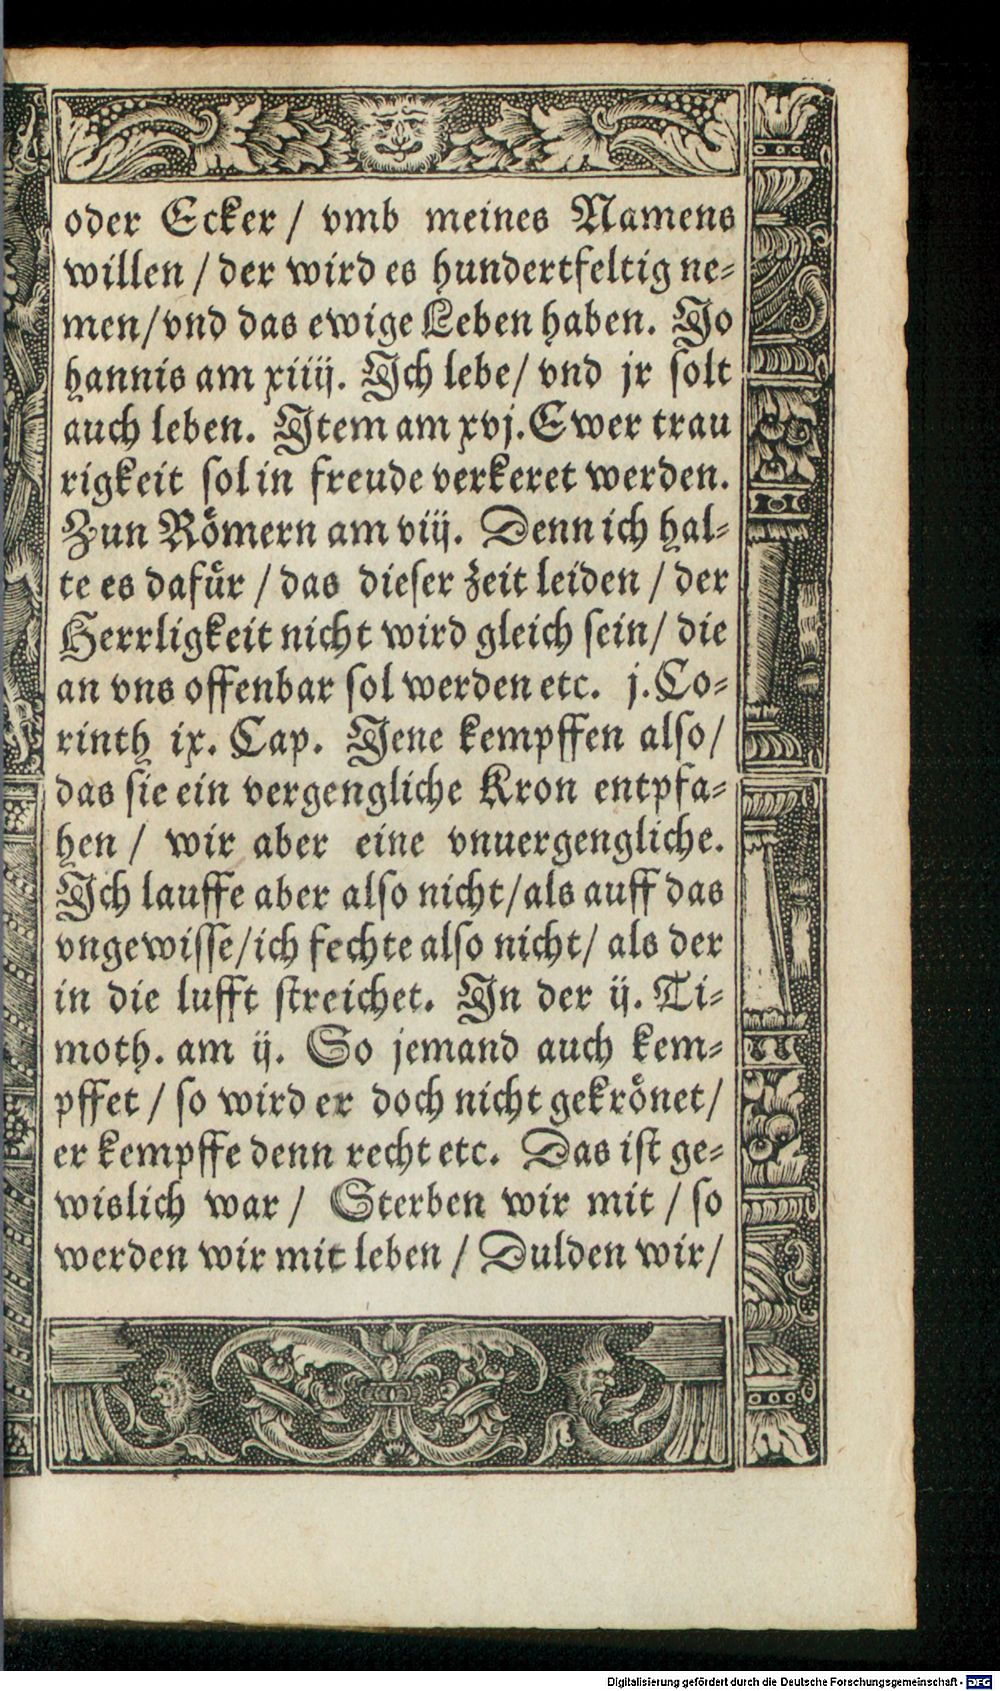 oder Ecker / vmb meines Namens
willen / der wird es hundertfeltig ne-
men/vnd das ewige Leben haben. Jo
hannis am xiiij. Jch lebe/ vnd jr solt
auch leben. Jtem am xvj. Ewer trau
rigkeit sol in freude verkeret werden.
Zun Römern am viij. Denn ich hal-
te es dafür / das dieser zeit leiden / der
Herrligkeit nicht wird gleich sein/ die
an vns offenbar sol werden etc. j. Co-
rinth ix. Cap. Jene kempffen also/
das sie ein vergengliche Kron entpfa-
hen / wir aber eine vnuergengliche.
Jch lauffe aber also nicht/als auff das
vngewisse/ich fechte also nicht/ als der
in die lufft streichet. Jn der ij. Ti-
moth. am ij. So jemand auch kem-
pffet / so wird er doch nicht gekrönet/
er kempffe denn recht etc. Das ist ge-
wislich war / Sterben wir mit / so
werden wir mit leben / Dulden wir/
Digitalisierung gefördert durch die Deutsche Forschungsgemeinschaft - DFG